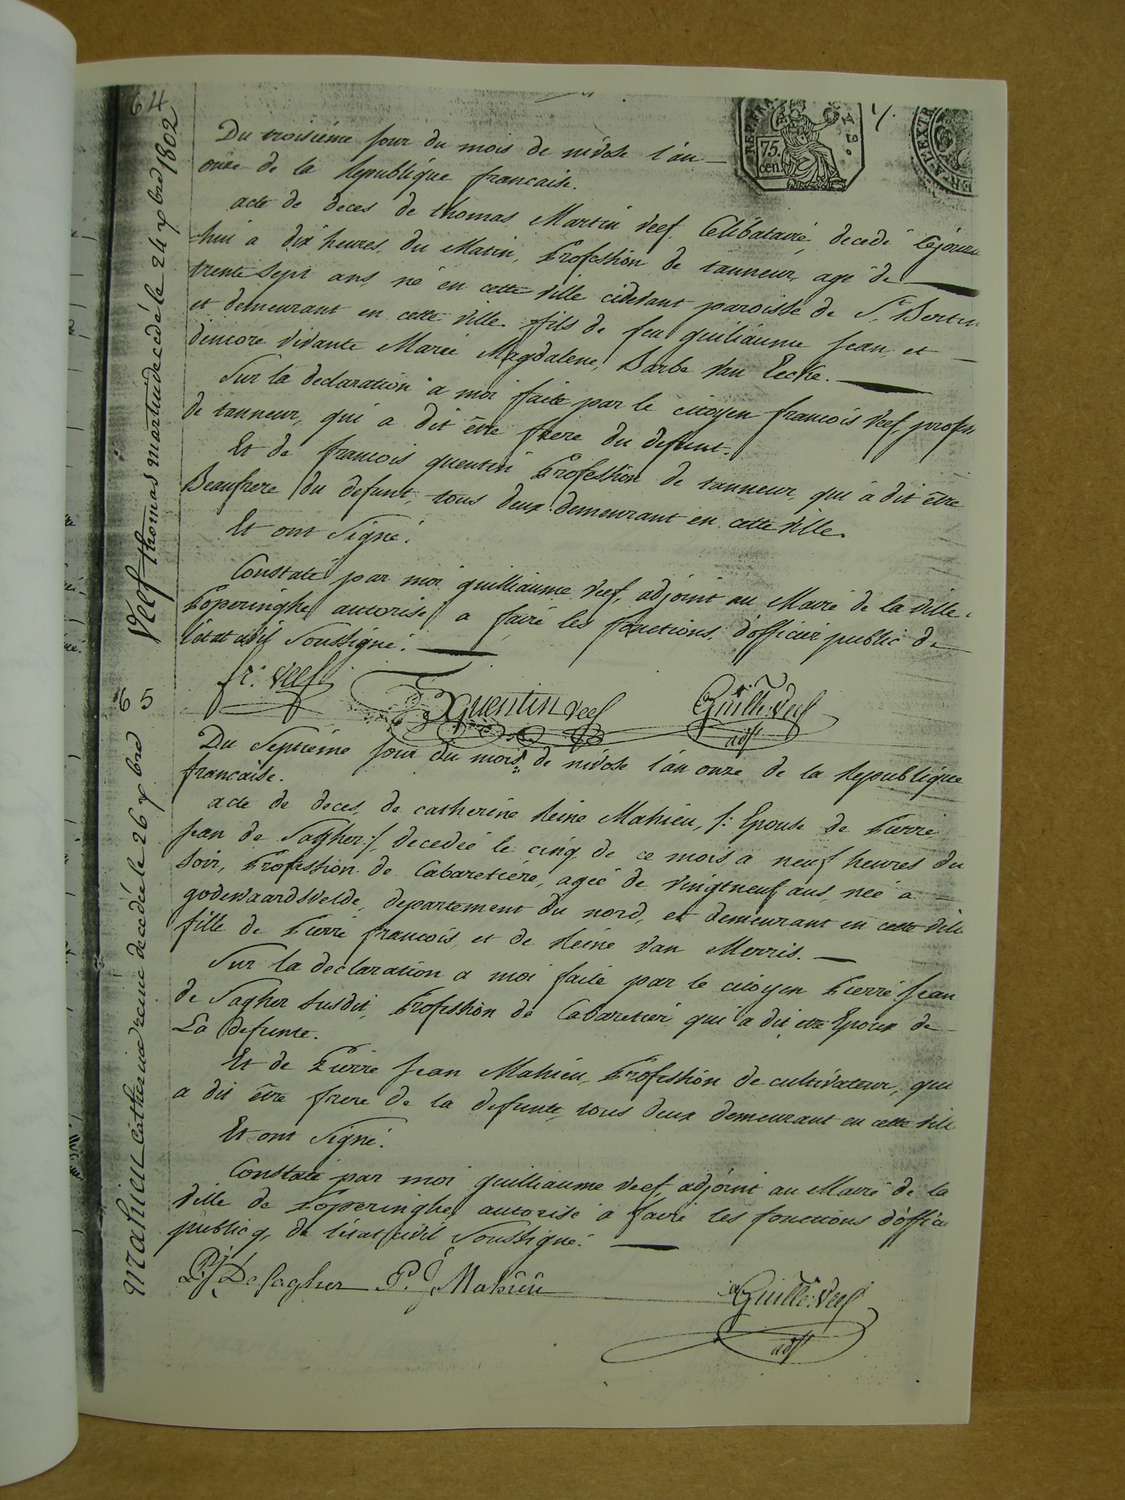 64
REP. FRA
75.
cen
Du troisiéme jour du mois de nivôse l'an
onze de la Republique francaise.
acte de deces de thomas Martin Veef Celibataire, decedé cejourd
hui a dix heures du Matin, Profession de tanneur, agé de
trente Sept ans né en cette ville cidevant paroisse de St. Bertin
et demeurant en cette ville fils de feu guilliaume Jean, et
d'encore vivante Marie Magdalene, Barbe Van Eecke.
Sur la declaration a moi faite par le citoyen francois Veef, profess
de tanneur, qui a dit être frere du defunt.
Et de francois quentin Profession de tanneur, qui a dit être
Beaufrere du defunt, tous deux demeurant en cette ville.
Et ont Signé.
Constaté par moi guilliaume Veef, adjoint au Maire de la Ville
Poperinghe autorisé a faire les fonctions d'officier public de
l'état civil Soussigné.
fr. Veef
Quentin Veef
Guille. Veef
adjt
Veef thomas martin decedé le 24 xbre 1802
65
Du Septiéme jour du mois de nivôse l'an onze de la Republique
francaise.
acte de deces de catherine Reine Mahieu, /: Epouse de Pierre
Jean de Sagher :/ decedée le cinq de ce mois a neuf heures du
Soir, Profession de Cabaretiére, ageé de vingtneuf ans, neé a
godewaardsvelde, departement du nord, et demeurant en cette vill
fille de Pierre francois, et de Reine Van Merris.
Sur la declaration a moi faite par le citoyen Pierre Jean
de Sagher Susdit, Profession de Cabaretier qui a dit etre Epoux de
La defunte.
Et de Pierre Jean Mahieu, Profession de cultivateur, qui
a dit être frere de la defunte, tous deux demeurant en cette vill
Et ont Signé.
Constaté par moi guilliaume Veef adjoint au Maire de la
Ville de Poperinghe autorisé a faire les fonctions d'offici
publicq, de l'état civil Soussigné.
P. J. De Sagher P. J. Mahieu
Guille. Veef
adjt
Mahieu Catherine reine decedé le 26 xbre